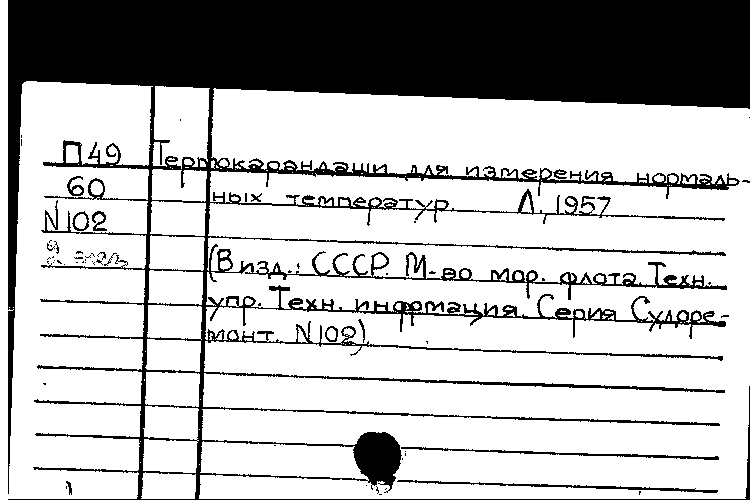 П49 Термокарандаши для измерения нормаль-
60 ных температур. Л., 1957
N102
2 экз
(В изд.: СССР. М-во мор. флота. Техн.
упр. Техн. информация. Серия Судоре-
монт. N102).